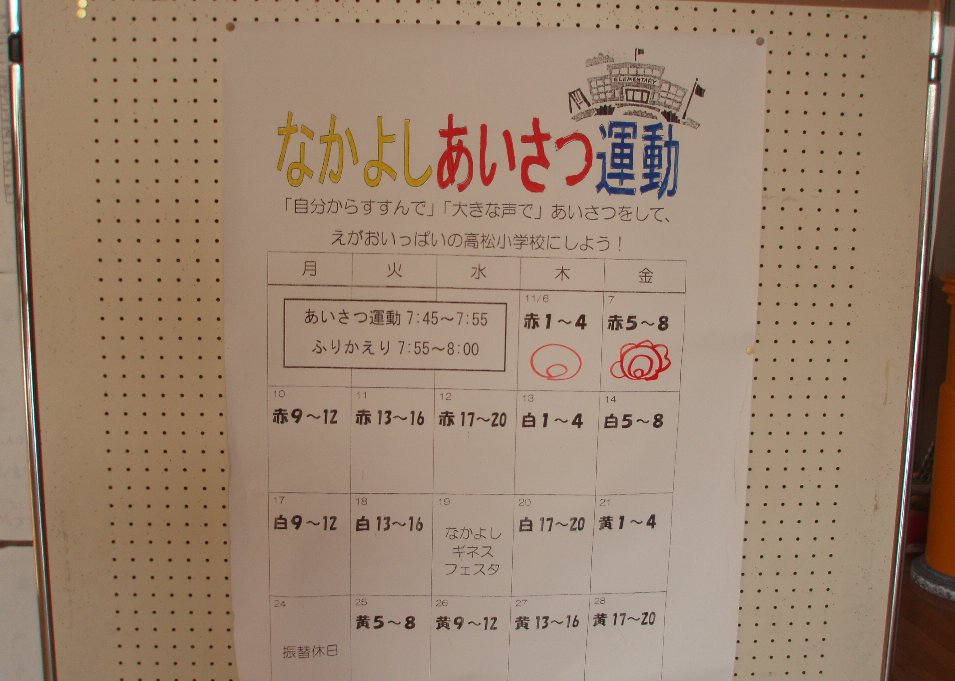 ELEMENTARY
なかよしあいさつ運動
「自分からすすんで」「大きな声で」あいさつをして、
えがおいっぱいの高松小学校にしよう！
月 火 水 木 金
あいさつ運動 7:45～7:55
ふりかえり 7:55～8:00
11/6 7
赤1～4 赤5～8
10 11 12 13 14
赤9～12 赤13～16 赤17～20 白1～4 白5～8
17 18 19 20 21
白9～12 白13～16 白17～20 黄1～4
なかよし
ギネス
フェスタ
24 25 26 27 28
黄5～8 黄9～12 黄13～16 黄17～20
振替休日